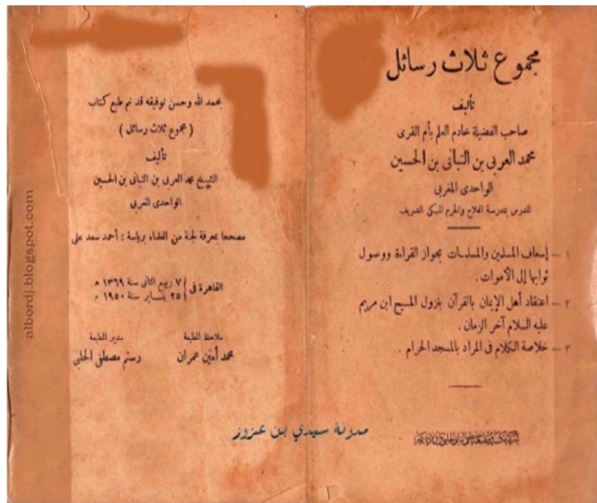 مجموع ثلاث رسائل
تأليف
صاحب الفضيلة خادم العلم بأم القرى
محمد العربى بن التبانى بن الحسين
الواحدى المغربى
المدرس بمدرسة الفلاح والحرم المكى الشريف
١ - إسعاف المسلمين والمسلمات بجواز القراءة ووصول
ثوابها إلى الأموات .
٢ - اعتقاد أهل الإيمان بالقرآن بنزول المسيح ابن مريم
عليه السلام آخر الزمان .
٣ - خلاصة الكلام فى المراد بالمسجد الحرام .
بحمد الله وحسن توفيقه قد تم طبع كتاب
( مجموع ثلاث رسائل )
تأليف
الشيخ محمد العربى بن التبانى بن الحسين
الواحدى المغربى
مصححا بمعرفة لجنة من العلماء برياسة : أحمد سعد على
القاهرة فى
٧ ربيع الثانى سنة ١٣٦٩ هـ
٢٥ يناير سنة ١٩٥٠ م
ملاحظ المطبعة
محمد أمين عمران
مدير المطبعة
رستم مصطفى الحلبى
مدونة سيدي بن عزوز
albordj.blogspot.com